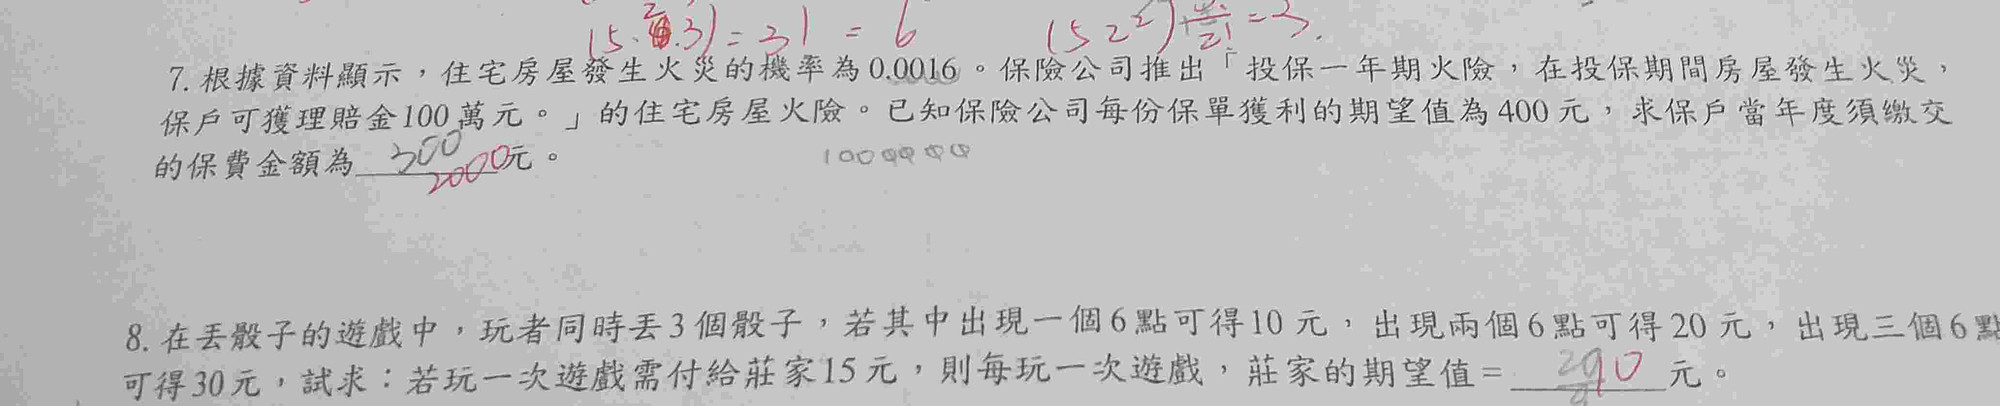 (5.2.3)=31=6 (522) 3!/2!=3.
7. 根據資料顯示，住宅房屋發生火災的機率為0.0016。保險公司推出「投保一年期火險，在投保期間房屋發生火災，
保戶可獲理賠金100萬元。」的住宅房屋火險。已知保險公司每份保單獲利的期望值為400元，求保戶當年度須繳交
的保費金額為 300 2000元。
1000000
8. 在丟骰子的遊戲中，玩者同時丟3個骰子，若其中出現一個6點可得10元，出現兩個6點可得20元，出現三個6點
可得30元，試求：若玩一次遊戲需付給莊家15元，則每玩一次遊戲，莊家的期望值= 10 元。